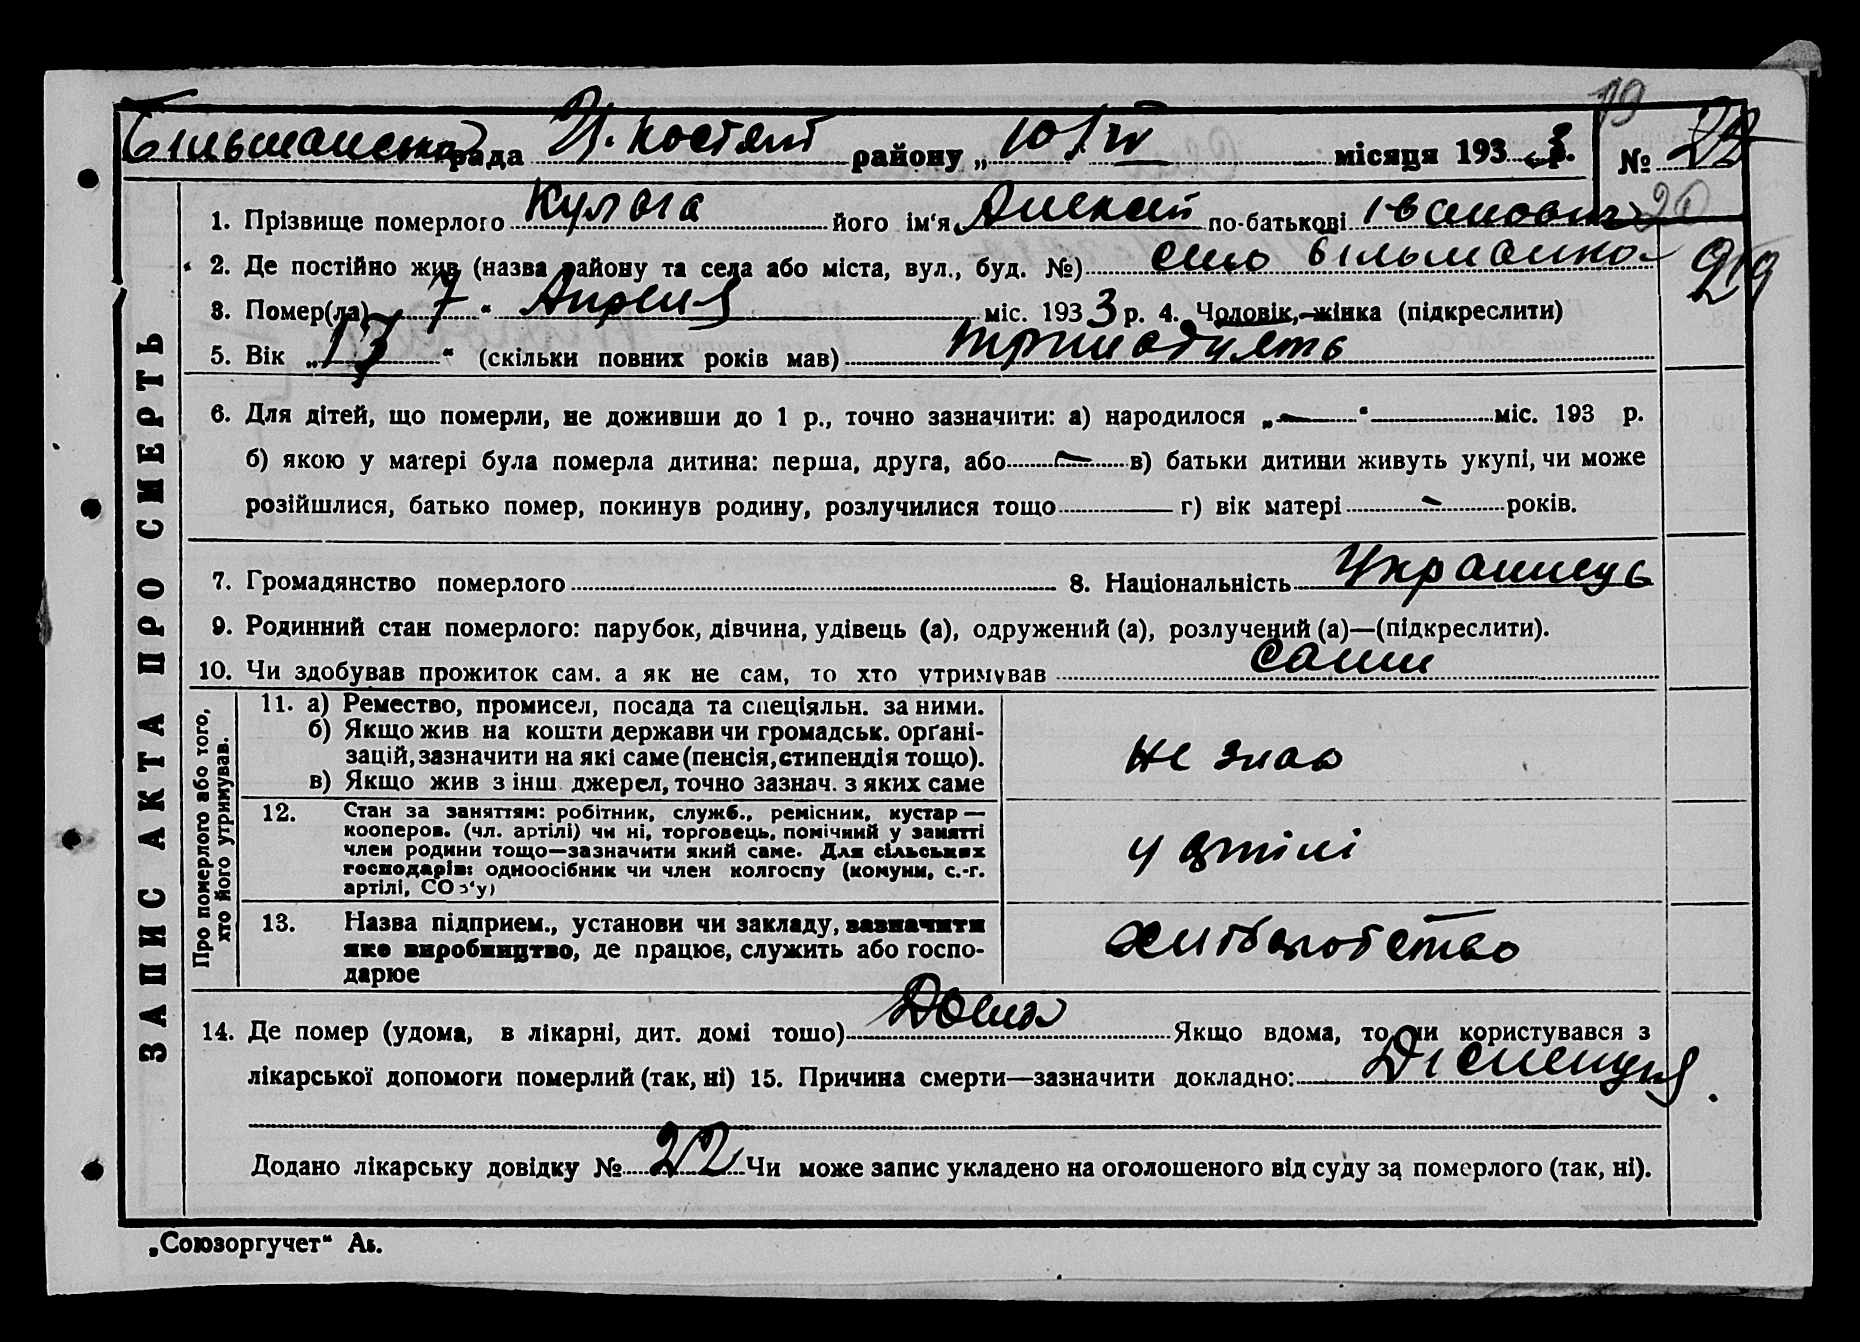 19
Більманська рада Ц. Костянт району „ 10/IV місяця 1933. № 22
20
1. Прізвище померлого Кульга його ім‘я Алексей по-батькові Іванович
2. Де постійно жив (назва району та села або міста, вул., буд. №) село Більманка
3. Помер(ла) 7 “ Апреля міс. 1933 р. 4. Чоловік, жінка (підкреслити)
5. Вік „ 13 “ (скільки повних років мав) тринадцять
6. Для дітей, що померли, не доживши до 1 р., точно зазначити: а) народилося „ — “ міс. 193 р.
б) якою у матері була померла дитина: перша, друга, або — в) батьки дитини живуть укупі, чи може
розійшлися, батько помер, покинув родину, розлучилися тощо г) вік матері - років.
7. Громадянство померлого 8. Національність Украинець
9. Родинний стан померлого: парубок, дівчина, удівець (а), одружений (а), розлучений (а)—(підкреслити).
10. Чи здобував прожиток сам. а як не сам, то хто утримував сами
ЗАПИС АКТА ПРО СМЕРТЬ
Про померлого або того, хто його утримував.
11. а) Ремество, промисел, посада та спеціяльн. за ними.
б) Якщо жив на кошти держави чи громадськ. орґані-
зацій, зазначити на які саме (пенсія, стипендія тощо).
в) Якщо жив з інш. джерел, точно зазнач. з яких саме
не знаю
12. Стан за заняттям: робітник, служб., ремісник, кустар—
кооперов. (чл. артілі) чи ні, торговець, помічний у занятті
член родини тощо—зазначити який саме. Для сільських
господарів: одноосібник чи член колгоспу (комуни, с.-г.
артілі, СОЗ‘у)
у артілі
13. Назва підприєм., установи чи закладу, зазначити
яке виробництво, де працює, служить або госпо-
дарює
14. Де помер (удома, в лікарні, дит. домі тощо) Дома Якщо вдома, то чи користувався з
лікарської допомоги померлий (так, ні) 15. Причина смерти—зазначити докладно:
Додано лікарську довідку № 22 Чи може запис укладено на оголошеного від суду за померлого (так, ні).
„Союзоргучет“